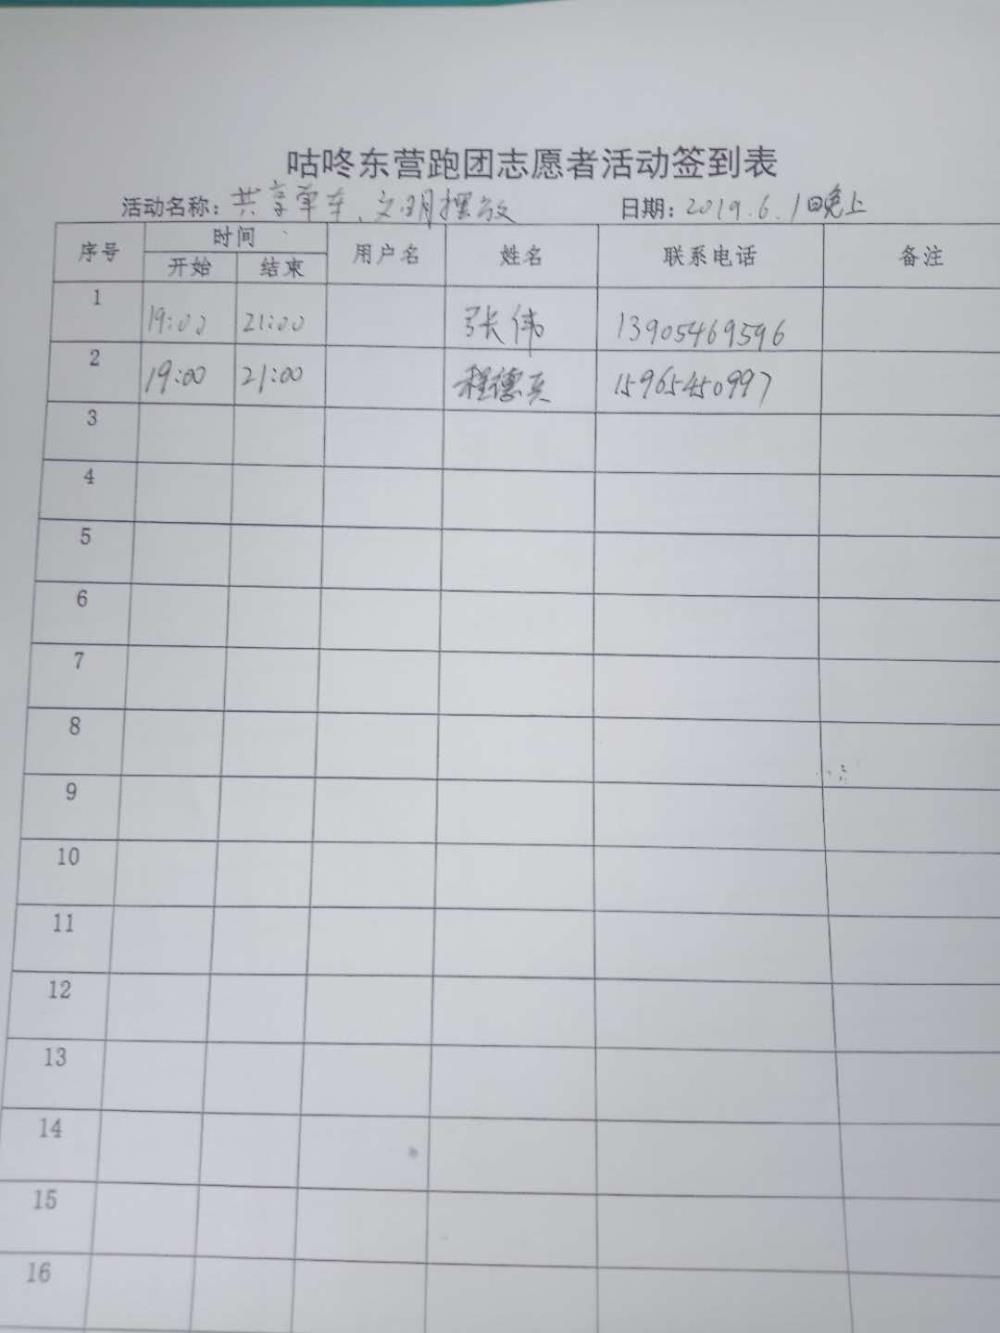 咕咚东营跑团志愿者活动签到表
活动名称：共享单车、文明摆放 日期：2019.6.1日晚上
序号 时间 用户名 姓名 联系电话 备注
开始 结束
1 19:00 21:00 张伟 13905469596
2 19:00 21:00 程德兵 15965450997
3
4
5
6
7
8
9
10
11
12
13
14
15
16